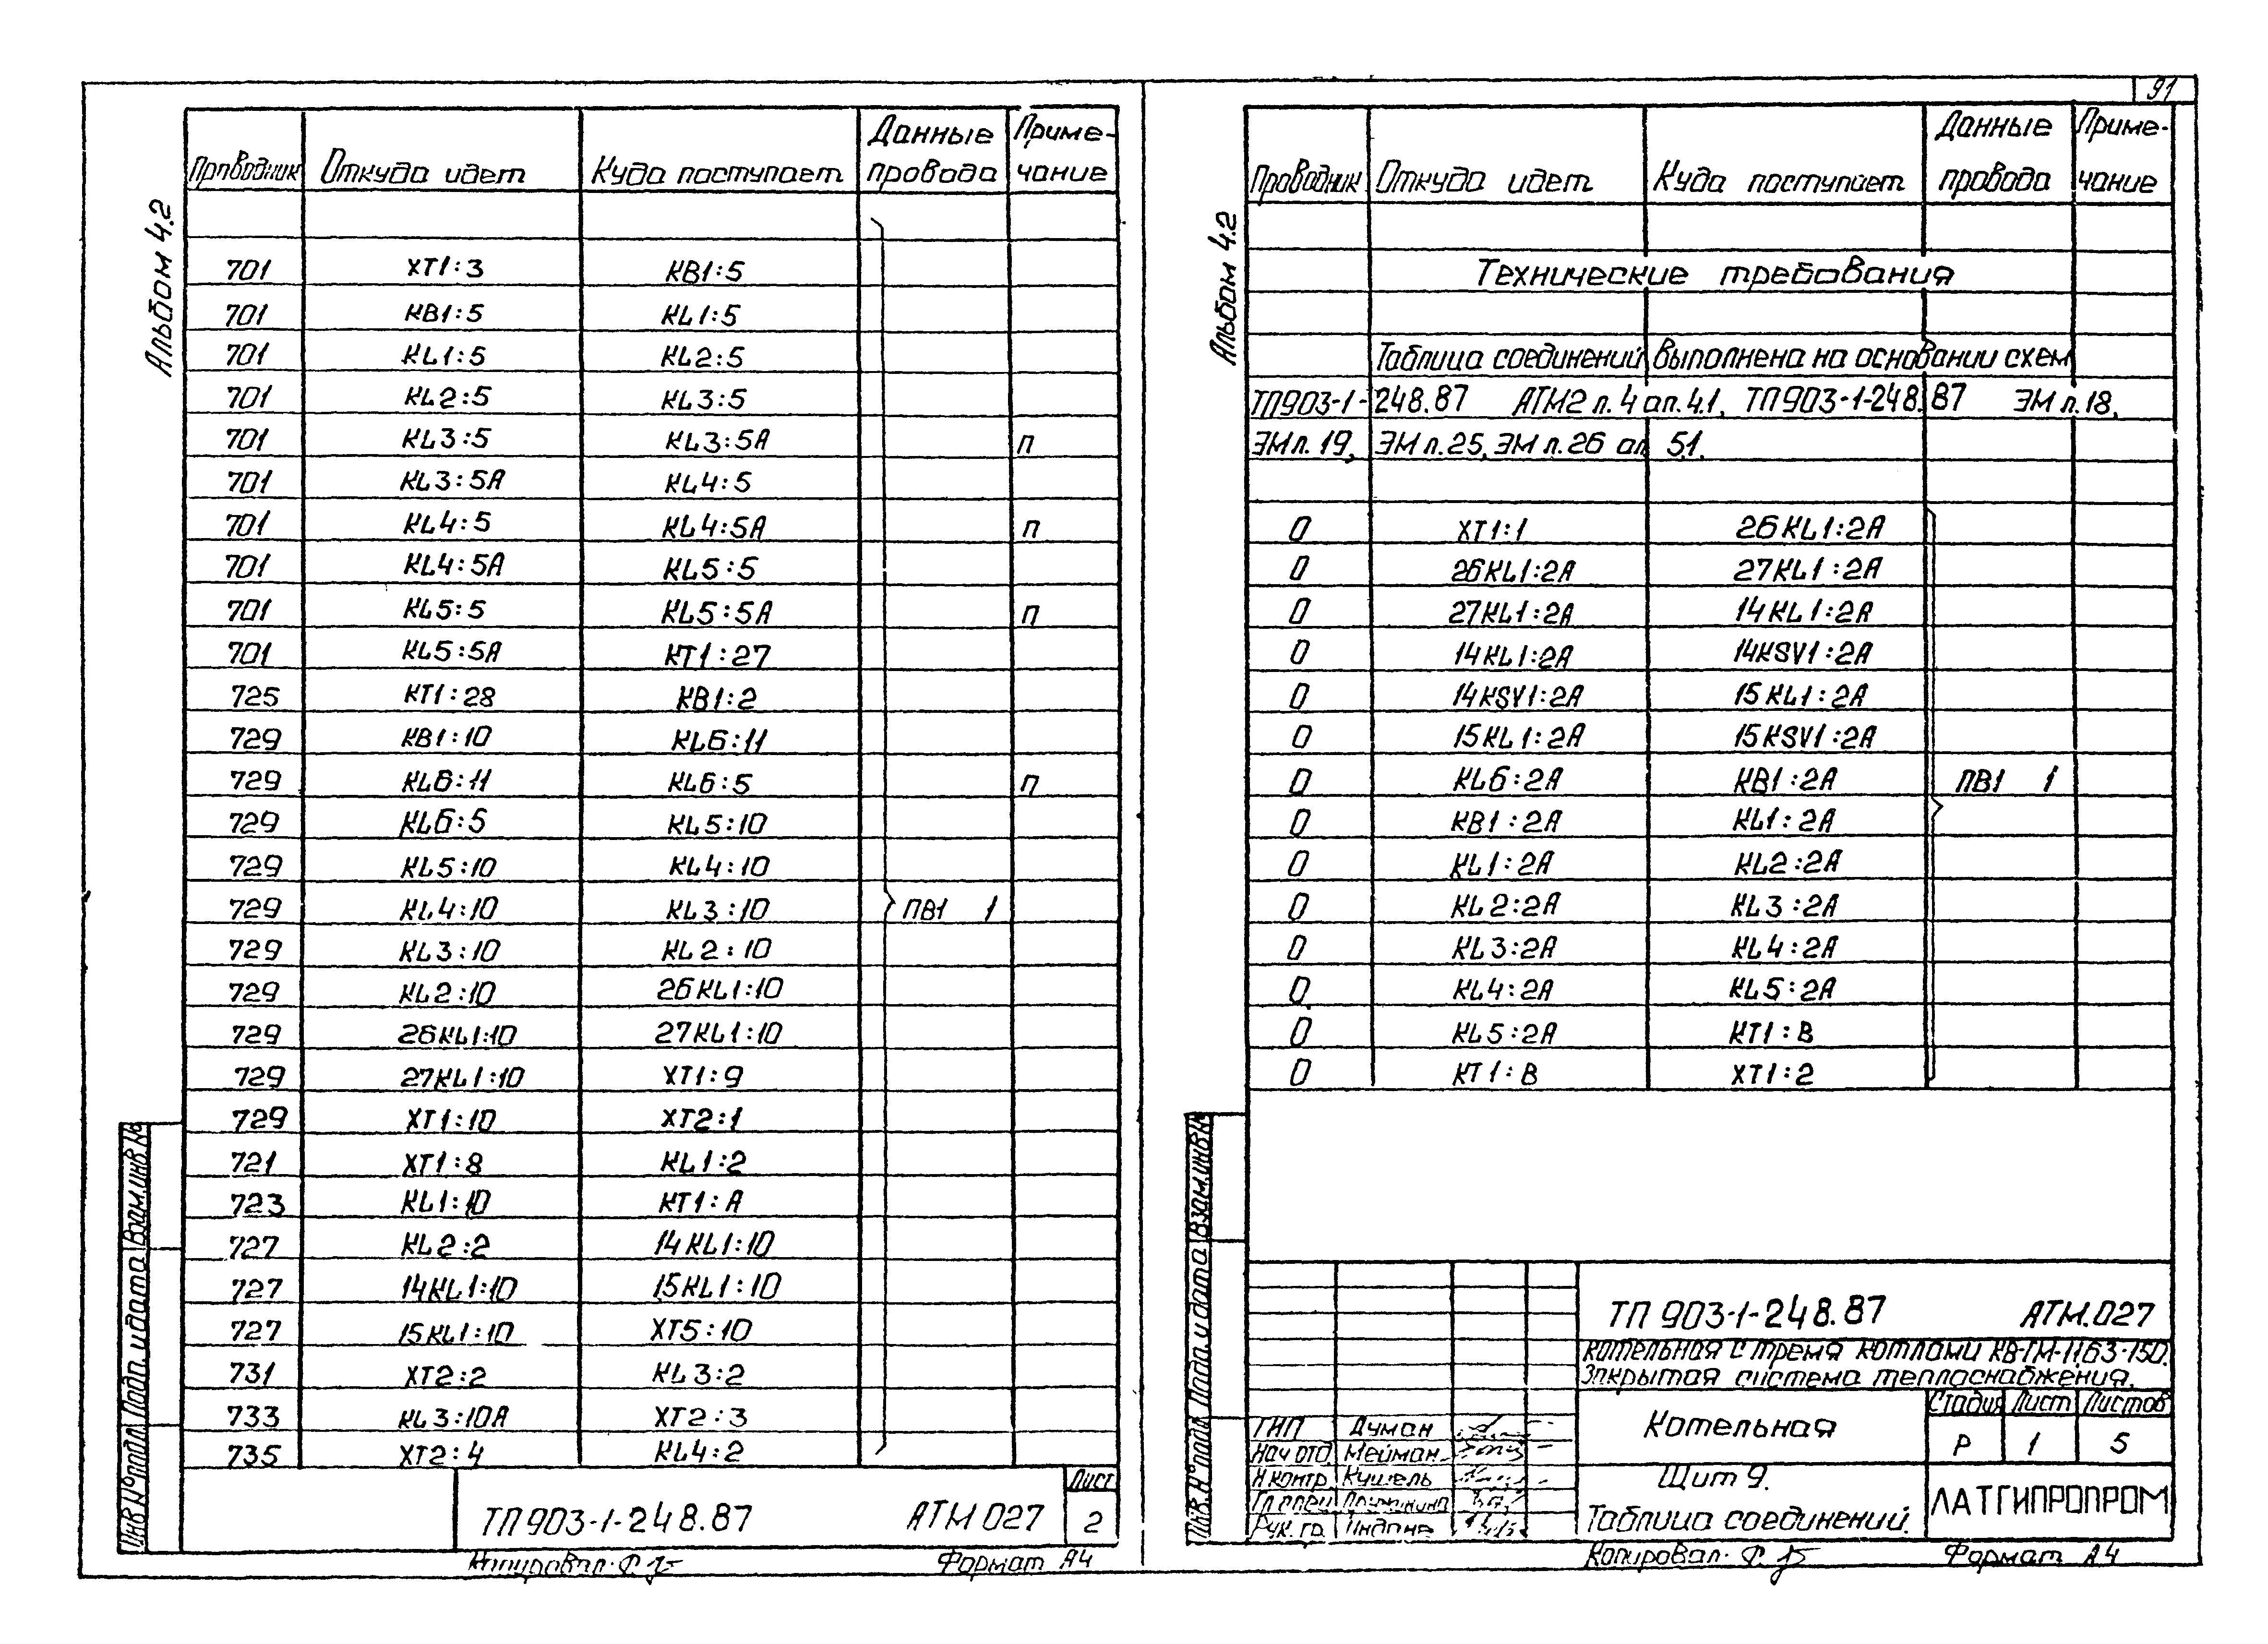 91
Альбом 4.2
Проводник Откуда идет Куда поступает Данные провода Приме-чание
701 XT1:3 KB1:5
701 KB1:5 KL1:5
701 KL1:5 KL2:5
701 KL2:5 KL3:5
701 KL3:5 KL3:5A п
701 KL3:5A KL4:5
701 KL4:5 KL4:5A п
701 KL4:5A KL5:5
701 KL5:5 KL5:5A п
701 KL5:5A KT1:27
725 KT1:28 KB1:2
729 KB1:10 KL6:11
729 KL6:11 KL6:5 п
729 KL6:5 KL5:10
729 KL5:10 KL4:10
729 KL4:10 KL3:10 ПВ1 1
729 KL3:10 KL2:10
729 KL2:10 26KL1:10
729 26KL1:10 27KL1:10
729 27KL1:10 XT1:9
729 XT1:10 XT2:1
721 XT1:8 KL1:2
723 KL1:10 KT1:A
727 KL2:2 14KL1:10
727 14KL1:10 15KL1:10
727 15KL1:10 XT5:10
731 XT2:2 KL3:2
733 KL3:10A XT2:3
735 XT2:4 KL4:2
Инв.№подл. Подп. и дата Взам.инв.№
ТП 903-1-248.87 АТМ 027 Лист 2
Копировал: Формат А4
Альбом 4.2
Проводник Откуда идет Куда поступает Данные провода Приме-чание
Технические требования
Таблица соединений выполнена на основании схем
ТП903-1-248.87 АТМ2 л.4 ал.4.1, ТП903-1-248.87 ЭМ л.18,
ЭМ л.19, ЭМ л.25, ЭМ л.26 ал 5.1.
0 XT1:1 26KL1:2A
0 26KL1:2A 27KL1:2A
0 27KL1:2A 14KL1:2A
0 14KL1:2A 14KSV1:2A
0 14KSV1:2A 15KL1:2A
0 15KL1:2A 15KSV1:2A
0 KL6:2A KB1:2A ПВ1 1
0 KB1:2A KL1:2A
0 KL1:2A KL2:2A
0 KL2:2A KL3:2A
0 KL3:2A KL4:2A
0 KL4:2A KL5:2A
0 KL5:2A KT1:B
0 KT1:B XT1:2
Инв.№подл. Подп. и дата Взам.инв.№
ТП 903-1-248.87 АТМ.027
Котельная с тремя котлами КВ-ГМ-11,63-150.
Закрытая система теплоснабжения.
Котельная
Стадия Лист Листов
Р 1 5
ГИП Думан
Нач отд. Мейман
Н.контр. Кушель
Гл.спец.
Рук. гр.
Щит 9.
Таблица соединений.
ЛАТГИПРОПРОМ
Копировал: Формат А4